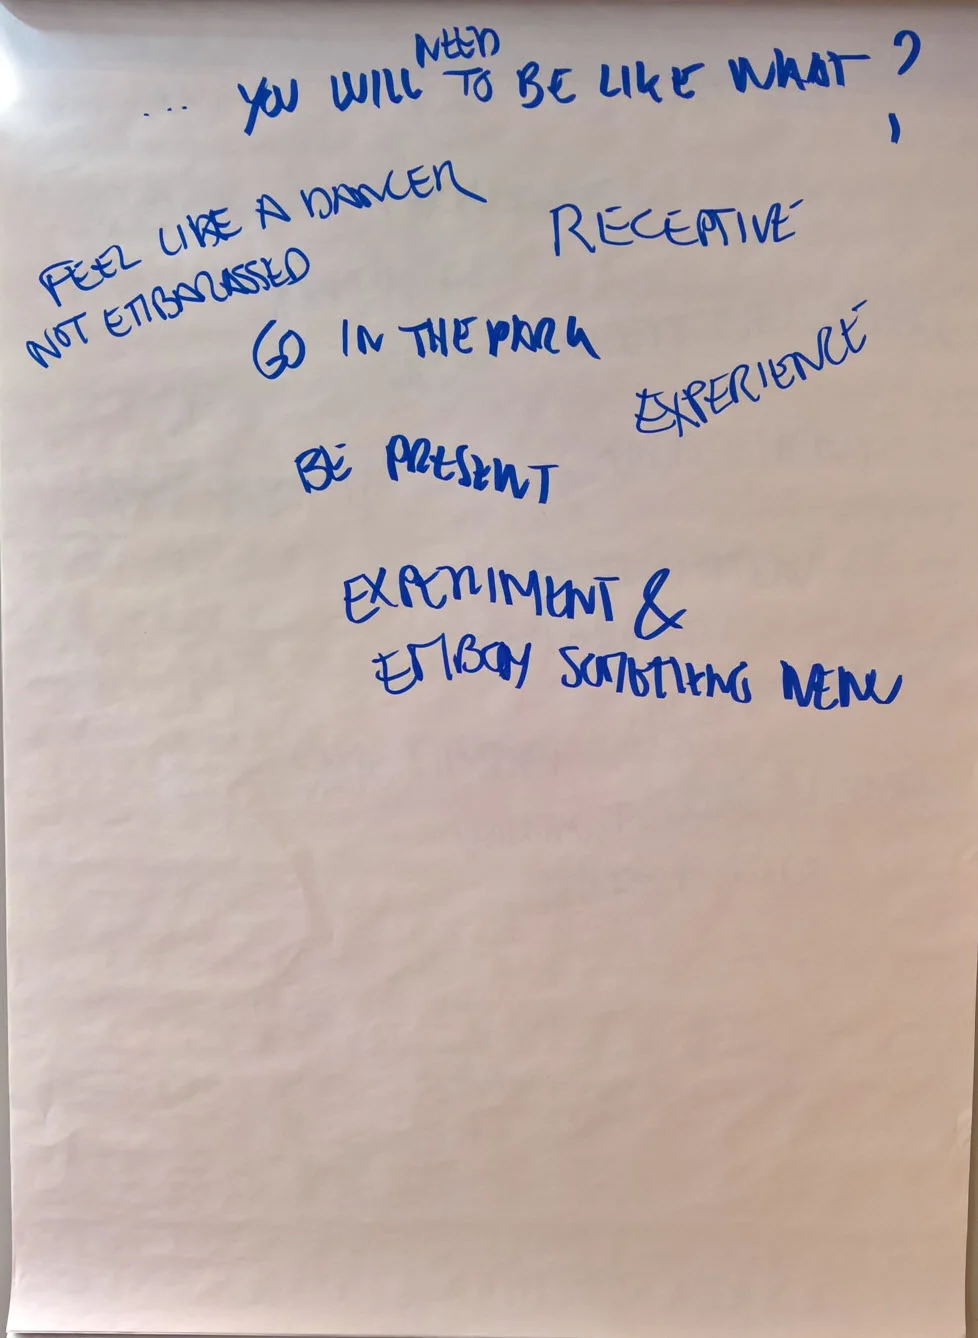 ... YOU WILL NEED TO BE LIKE WHAT?
FEEL LIKE A DANCER
NOT EMBARASSED
RECEPTIVE
GO IN THE PARK
EXPERIENCE
BE PRESENT
EXPERIMENT &
EMBODY SOMETHING NEW